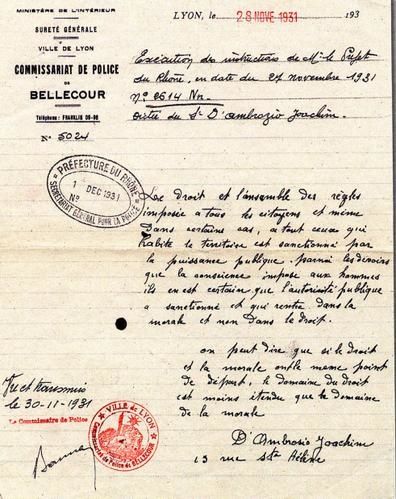 MINISTÈRE DE L'INTÉRIEUR
SURETÉ GÉNÉRALE
VILLE DE LYON
COMMISSARIAT DE POLICE
DE
BELLECOUR
Téléphone : FRANKLIN 06-98
N° 5024
LYON, le 28 NOVE 1931 193
Exécution des instructions de Mr le Préfet
du Rhône, en date du 27 novembre 1931
N° 2614 Nn.
Dictée du Sr D'ambrozio Joachim.
PRÉFECTURE DU RHÔNE
1 DEC 1931
N°
SECRÉTARIAT GÉNÉRAL POUR LA POLICE
Le droit et l'ensemble des règles
imposée a tous les citoyens et même
Dans certains cas, a tout ceux qui
habite le territoire est sanctionné par
la puissance publique. parmi les devoirs
que la conscience impose aux hommes
ils en est certain que l'autorité publique
a sanctionné et qui rentre dans la
morale et non Dans le droit.
on peut dire que si le droit
et la morale ont le meme point
de départ, le domaine du droit
est moins étendue que le domaine
de la morale
Vu et transmis
le 30-11-1931
Le Commissaire de Police
VILLE de LYON
Commissariat de Police de BELLECOUR
D'Ambrosio Joachim
13 rue Ste Hélène